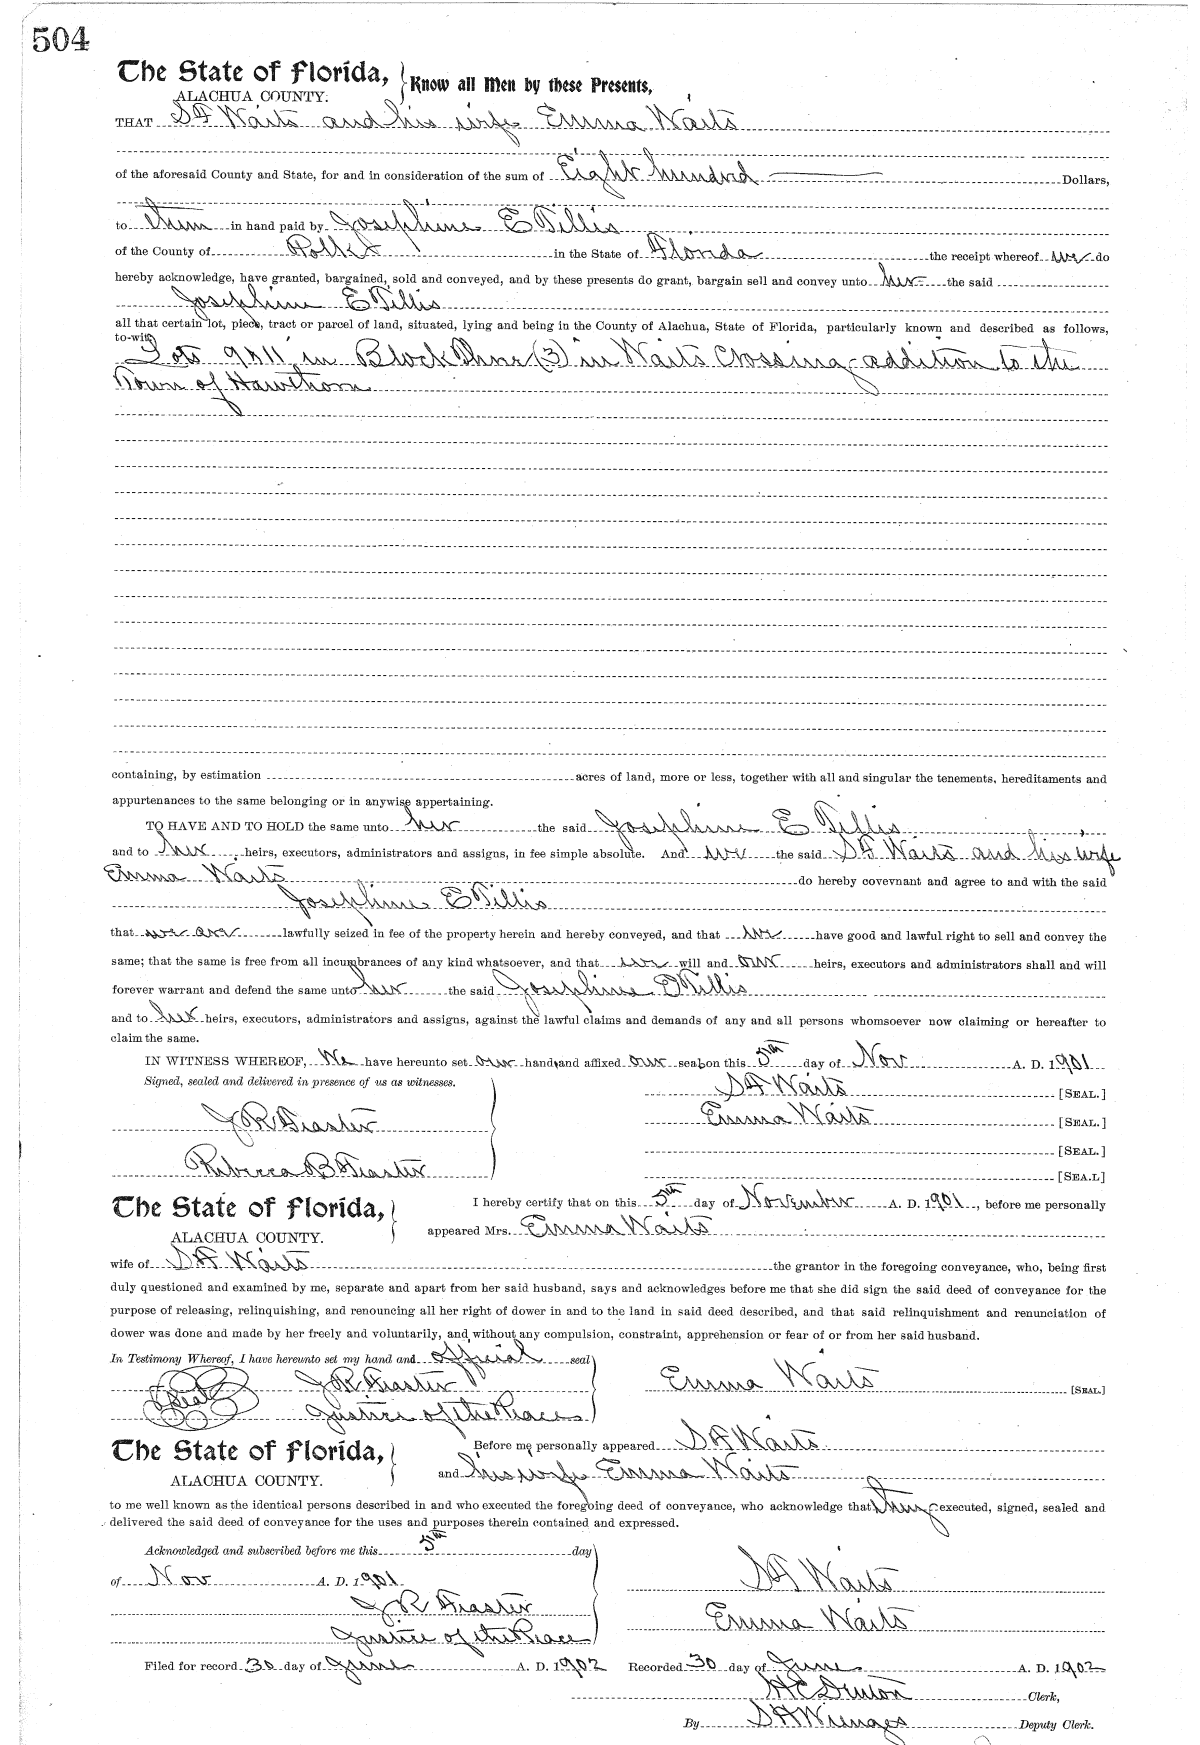 504
The State of Florida, Know all Men by these Presents,
ALACHUA COUNTY.
THAT S F Waits and his wife Emma Waits
of the aforesaid County and State, for and in consideration of the sum of Eight hundred Dollars,
to them in hand paid by Josephine E Tillis
of the County of Polk in the State of Florida the receipt whereof we do
hereby acknowledge, have granted, bargained, sold and conveyed, and by these presents do grant, bargain sell and convey unto her the said
Josephine E Tillis
all that certain lot, piece, tract or parcel of land, situated, lying and being in the County of Alachua, State of Florida, particularly known and described as follows,
to-wit:
Lots 9 & 11 in Block Three (3) in Waits Crossing addition to the
Town of Hawthorn
containing, by estimation acres of land, more or less, together with all and singular the tenements, hereditaments and
appurtenances to the same belonging or in anywise appertaining.
TO HAVE AND TO HOLD the same unto her the said Josephine E Tillis,
and to her heirs, executors, administrators and assigns, in fee simple absolute. And we the said S F Waits and his wife
Emma Waits do hereby covevnant and agree to and with the said
Josephine E Tillis
that we are lawfully seized in fee of the property herein and hereby conveyed, and that we have good and lawful right to sell and convey the
same; that the same is free from all incumbrances of any kind whatsoever, and that we will and our heirs, executors and administrators shall and will
forever warrant and defend the same unto her the said Josephine E Tillis
and to her heirs, executors, administrators and assigns, against the lawful claims and demands of any and all persons whomsoever now claiming or hereafter to
claim the same.
IN WITNESS WHEREOF, We have hereunto set our hands and affixed our seals on this 5th day of Nov A. D. 1901
Signed, sealed and delivered in presence of us as witnesses.
S F Waits [SEAL.]
J R Feaster
Emma Waits [SEAL.]
[SEAL.]
Rebecca B Feaster
[SEAL]
The State of Florida, I hereby certify that on this 5th day of November A. D. 1901, before me personally
ALACHUA COUNTY. appeared Mrs. Emma Waits
wife of S F Waits the grantor in the foregoing conveyance, who, being first
duly questioned and examined by me, separate and apart from her said husband, says and acknowledges before me that she did sign the said deed of conveyance for the
purpose of releasing, relinquishing, and renouncing all her right of dower in and to the land in said deed described, and that said relinquishment and renunciation of
dower was done and made by her freely and voluntarily, and without any compulsion, constraint, apprehension or fear of or from her said husband.
In Testimony Whereof, I have hereunto set my hand and official seal
Seal J R Feaster Emma Waits [SEAL.]
Justice of the Peace
The State of Florida, Before me personally appeared S F Waits
ALACHUA COUNTY. and his wife Emma Waits
to me well known as the identical persons described in and who executed the foregoing deed of conveyance, who acknowledge that they executed, signed, sealed and
delivered the said deed of conveyance for the uses and purposes therein contained and expressed.
Acknowledged and subscribed before me this 5th day
of Nov A. D. 1901 S F Waits
J R Feaster
Emma Waits
Justice of the Peace
Filed for record 30 day of June A. D. 1902 Recorded 30 day of June A. D. 1902
H C Denton Clerk,
By S H Wienges Deputy Clerk.